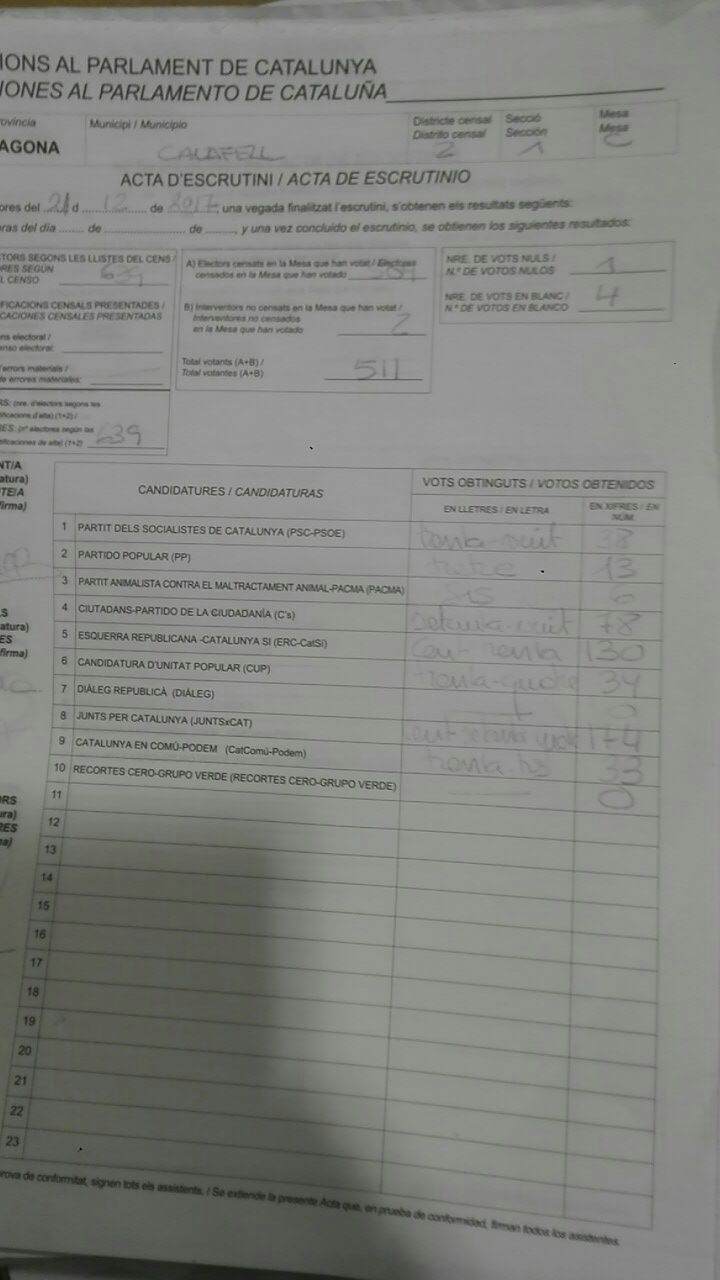 IONS AL PARLAMENT DE CATALUNYA
IONES AL PARLAMENTO DE CATALUÑA
rovíncia Municipi / Municipio Districte censal Secció Mesa
Distrito censal Sección Mesa
AGONA CALAFELL 2 1 C
ACTA D'ESCRUTINI / ACTA DE ESCRUTINIO
ores del 21 d 12 de 2017, una vegada finalitzat l'escrutini, s'obtenen els resultats següents:
oras del día ........ de .................... de ........, y una vez concluido el escrutinio, se obtienen los siguientes resultados:
CTORS SEGONS LES LLISTES DEL CENS /
ORES SEGÚN
L CENSO 639
IFICACIONS CENSALS PRESENTADES /
CACIONES CENSALES PRESENTADAS
ns electoral /
enso electoral:
'errors materials /
de errores materiales:
RS: (nre. d'electors segons les
tificacions d'alta) (1+2) /
RES: (nº electores según las
tificaciones de alta) (1+2) 639
A) Electors censats en la Mesa que han votat / Electores
censados en la Mesa que han votado
B) Interventors no censats en la Mesa que han votat /
Interventores no censados
en la Mesa que han votado 2
Total votants (A+B) /
Total votantes (A+B) 511
NRE. DE VOTS NULS /
N.º DE VOTOS NULOS 1
NRE. DE VOTS EN BLANC /
N.º DE VOTOS EN BLANCO 4
NT/A
atura)
TE/A
firma)
CANDIDATURES / CANDIDATURAS VOTS OBTINGUTS / VOTOS OBTENIDOS
EN LLETRES / EN LETRA EN XIFRES / EN NÚM.
1 PARTIT DELS SOCIALISTES DE CATALUNYA (PSC-PSOE) trenta-vuit 38
2 PARTIDO POPULAR (PP) tretze 13
3 PARTIT ANIMALISTA CONTRA EL MALTRACTAMENT ANIMAL-PACMA (PACMA) sis 6
4 CIUTADANS-PARTIDO DE LA CIUDADANÍA (C's) setanta-vuit 78
5 ESQUERRA REPUBLICANA -CATALUNYA SI (ERC-CatSí) cent trenta 130
6 CANDIDATURA D'UNITAT POPULAR (CUP) trenta-quatre 34
7 DIÀLEG REPUBLICÀ (DIÀLEG) 0
8 JUNTS PER CATALUNYA (JUNTSxCAT) cent setanta quatre 174
9 CATALUNYA EN COMÚ-PODEM (CatComú-Podem) trenta-tres 33
10 RECORTES CERO-GRUPO VERDE (RECORTES CERO-GRUPO VERDE) 0
11
12
13
14
15
16
17
18
19
20
21
22
23
S
atura)
ES
firma)
ORS
ura)
RES
na)
prova de conformitat, signen tots els assistents. / Se extiende la presente Acta que, en prueba de conformidad, firman todos los asistentes.